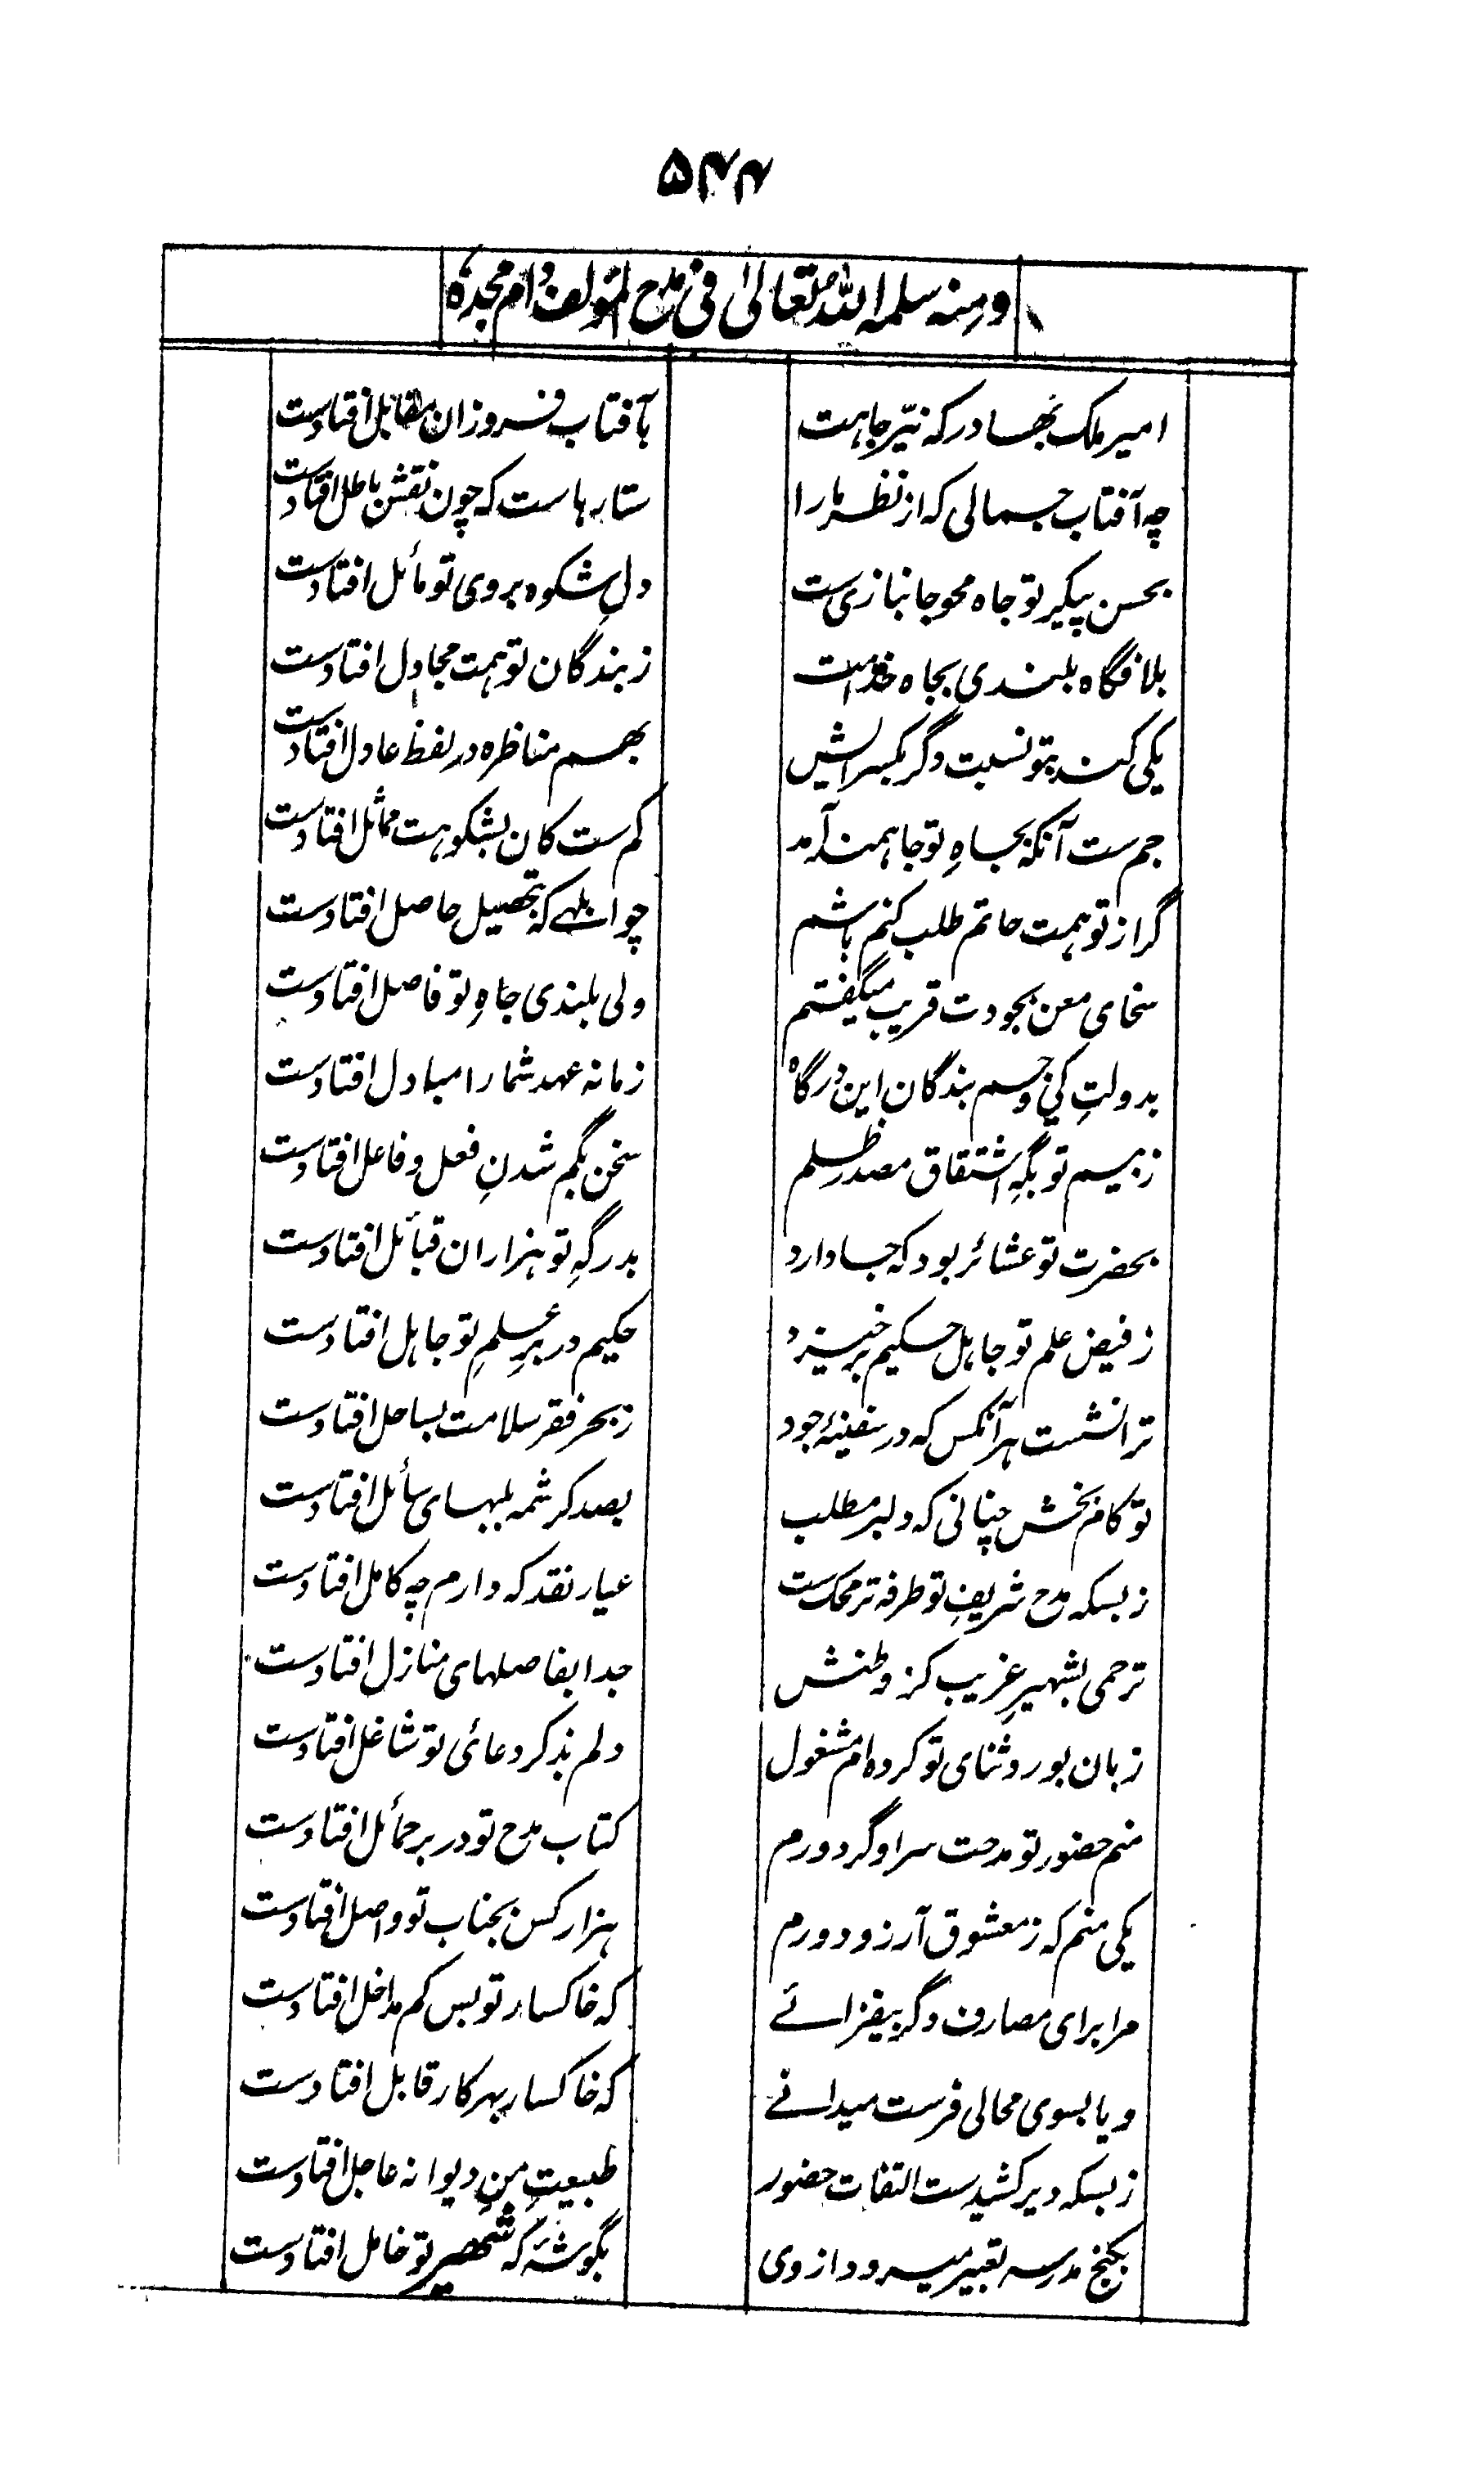 ۵۴۴
ومنه سلمه الله تعالیٰ فی مدح المؤلف دام مجدهٗ
امیر ملک بهادر که نیّر جاهت
بآفتاب فروزان مقابل افتادست
چه آفتاب جمالی که از نظر ما را
ستارهاست که چون نقش باطل افتادست
بحسن پیکر تو جاه محو جانبازی ست
دلِ شکوه بروی تو مائل افتادست
بلافگاه بلندی بجاه
ز بندگان تو همت مجادل افتادست
یکی کند بتو نسبت دگر بکسرایش
بهم مناظره در لفظ عادل افتادست
جم ست آنکه بجاهِ تو جاهمند آمد
کم ست کان بشکوهت مماثل افتادست
گر از تو همت حاتم طلب کنم باشم
چو ابلهے که بتحصیل حاصل افتادست
سخای معن بجودت قریب میگفتم
ولی بلندی جاهِ تو فاصل افتادست
بدولتِ کی و جم بندگان این درگاه
زمانه عهد شما را مبادل افتادست
ز بیم تو بگهِ اشتقاق مصدر ظلم
سخن بگم شدنِ فعل و فاعل افتادست
بحضرت تو عشائر بود که جا دارد
بدرگهِ تو هزاران قبائل افتادست
ز فیض علم تو جاهل حکیم برخیزد
حکیم در برِ علمِ تو جاهل افتادست
ترا نشست هرآنکس که در سفینهٔ جود
ز بحر فقر سلامت بساحل افتادست
تو کام بخش چنانی که دلبر مطلب
بصد کرشمه بلبهای سائل افتادست
زبسکه مدح شریفِ تو طرفه تر محک ست
عیار نقد که دارم چه کامل افتادست
ترحمی بشهیرِ غریب کز وطنش
جدا بفاصلهای منازل افتادست
زبان بورد ثنای تو کرده ام مشغول
دلم بذکر دعائی تو شاغل افتادست
منم حضور تو مدحت سرا وگر دورم
کتاب مدح تو در بر حمائل افتادست
یکی منم که ز معشوق آرزو دورم
هزار کس بجناب تو واصل افتادست
مرا برای مصارف دگر بیفزائے
که خاکسار تو بس کم مداخل افتادست
و یا بسوی محالی فرست میدانے
که خاکسار بهر کار قابل افتادست
زبسکه دیر کشیدست التفات حضور
طبیعتِ منِ دیوانه عاجل افتادست
بکنج مدرسه تعبیر میرود از وی
بگوشهٔ که شهیر تو خامل افتادست